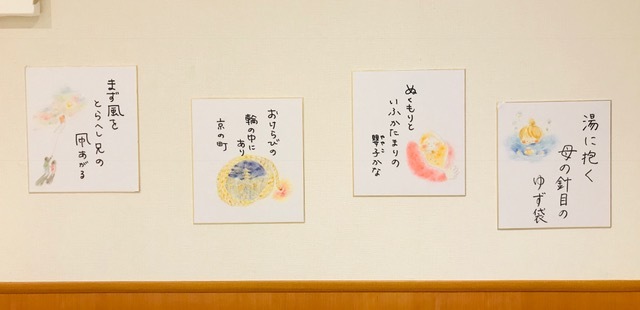 まず風を
とらへし兄の
凧あがる
おけらびの
輪の中に
あり
京の町
ぬくもりと
いふかたまりの
嬰子かな
ややこ
湯に抱く
母の針目の
ゆず袋